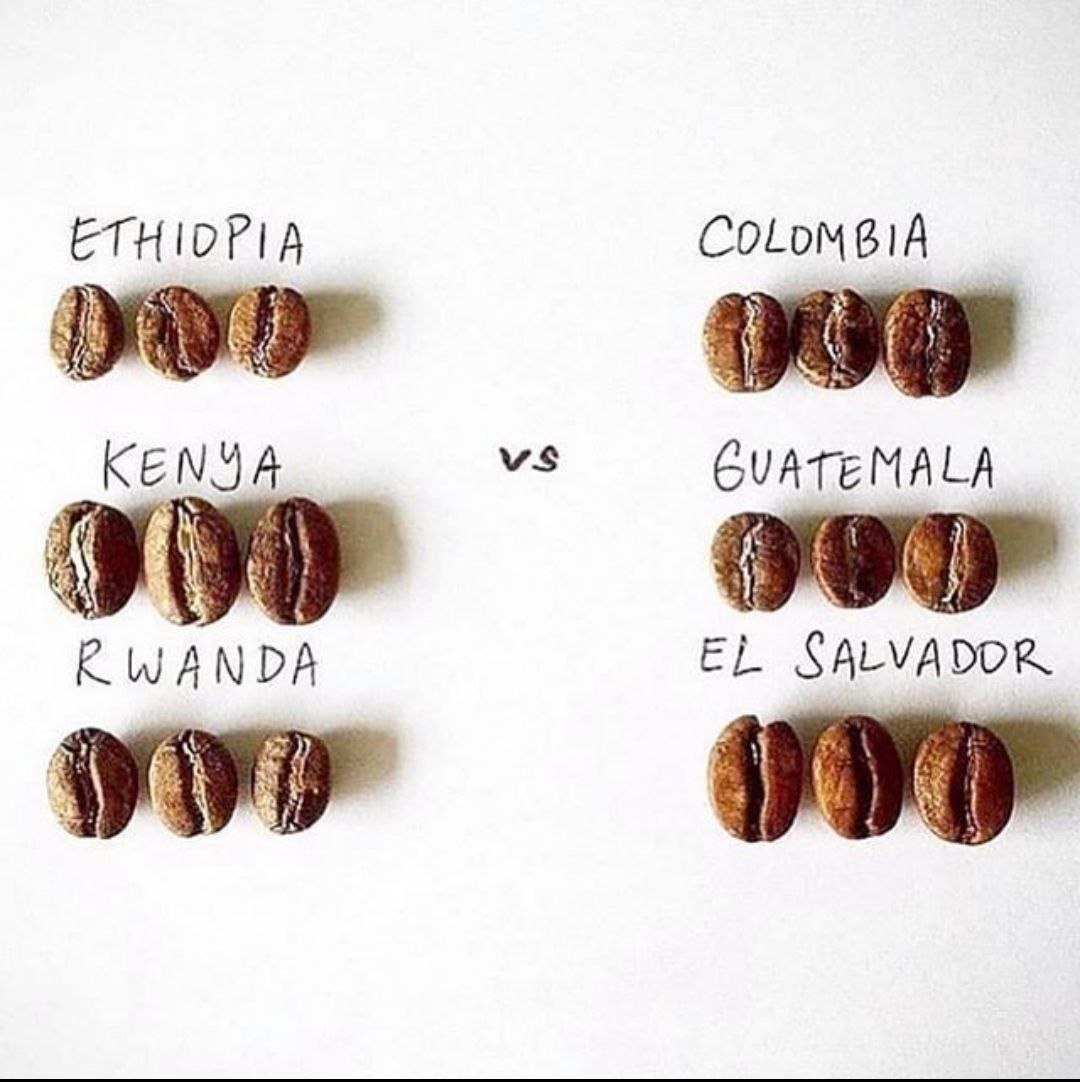 ETHIOPIA
KENYA
RWANDA
vs
COLOMBIA
GUATEMALA
EL SALVADOR